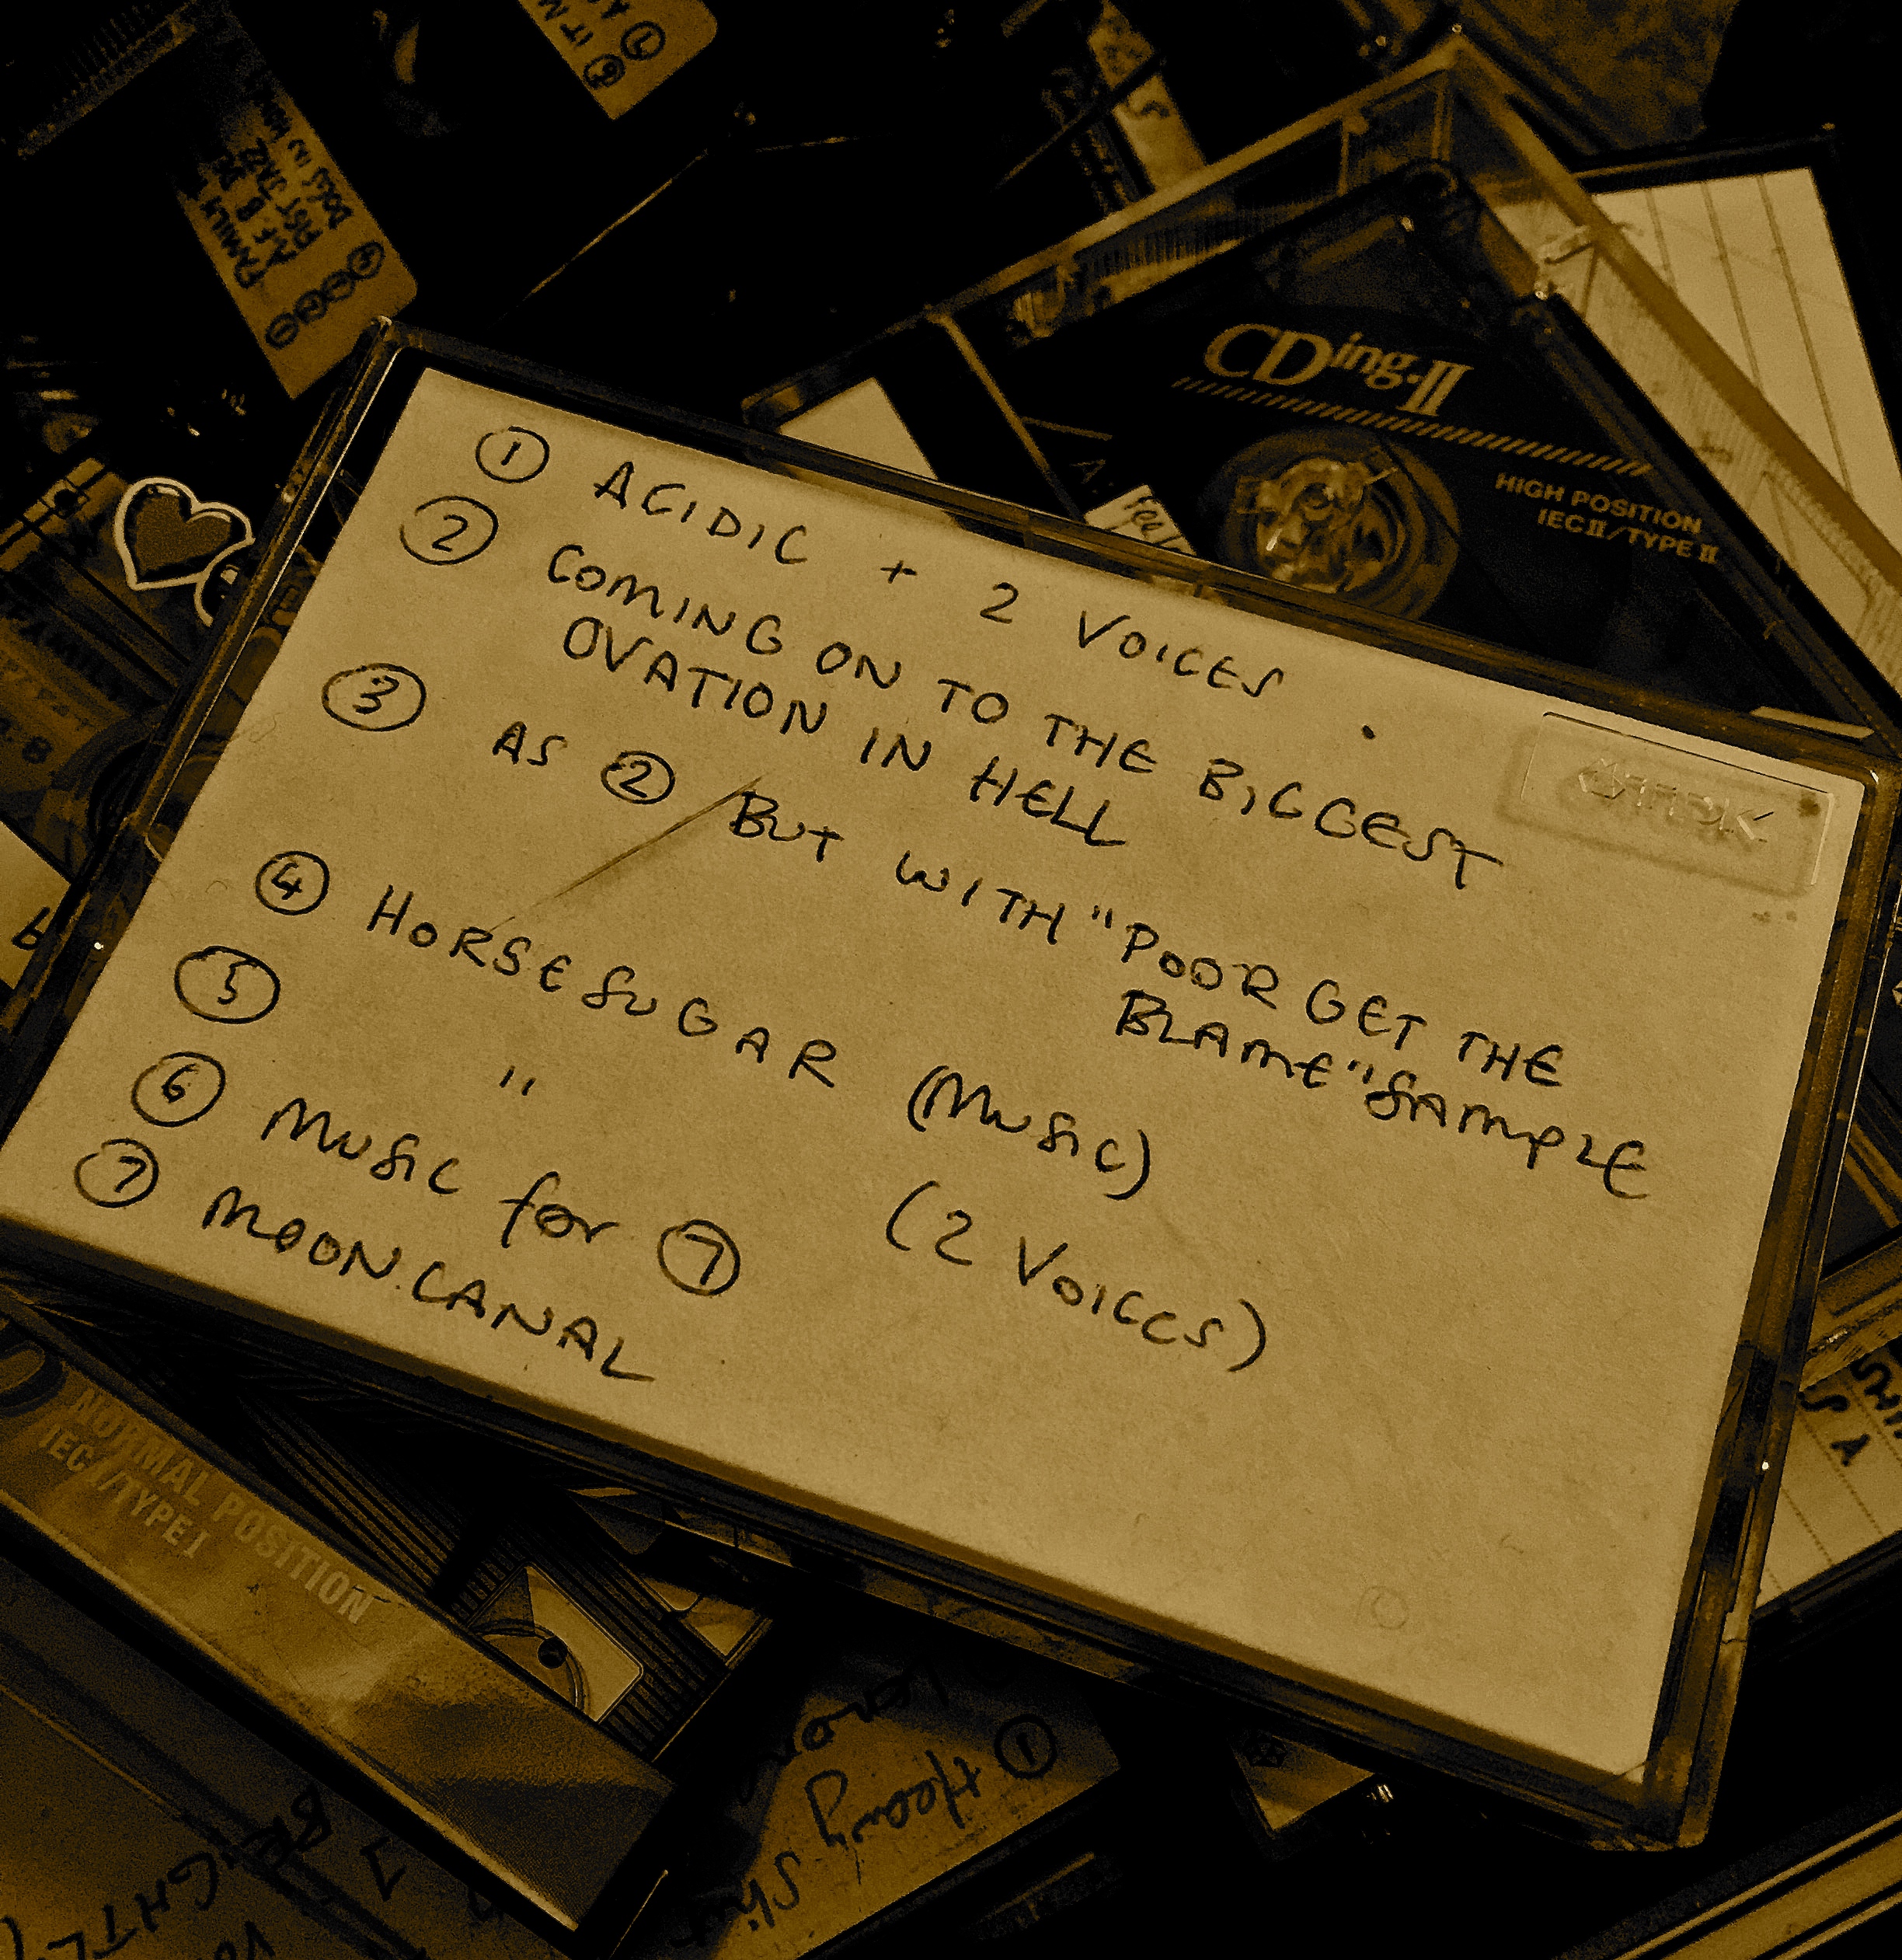 ① ACIDIC + 2 VOICES
② COMING ON TO THE BIGGEST
OVATION IN HELL
③ AS ② BUT WITH "POOR GET THE
BLAME" SAMPLE
④ HORSESUGAR (MUSIC)
⑤ " (2 VOICES)
⑥ MUSIC for ⑦
⑦ MOON.CANAL
TDK
CDing-II
HIGH POSITION
IEC II/TYPE II
NORMAL POSITION
IEC I/TYPE I
FAMILY
①